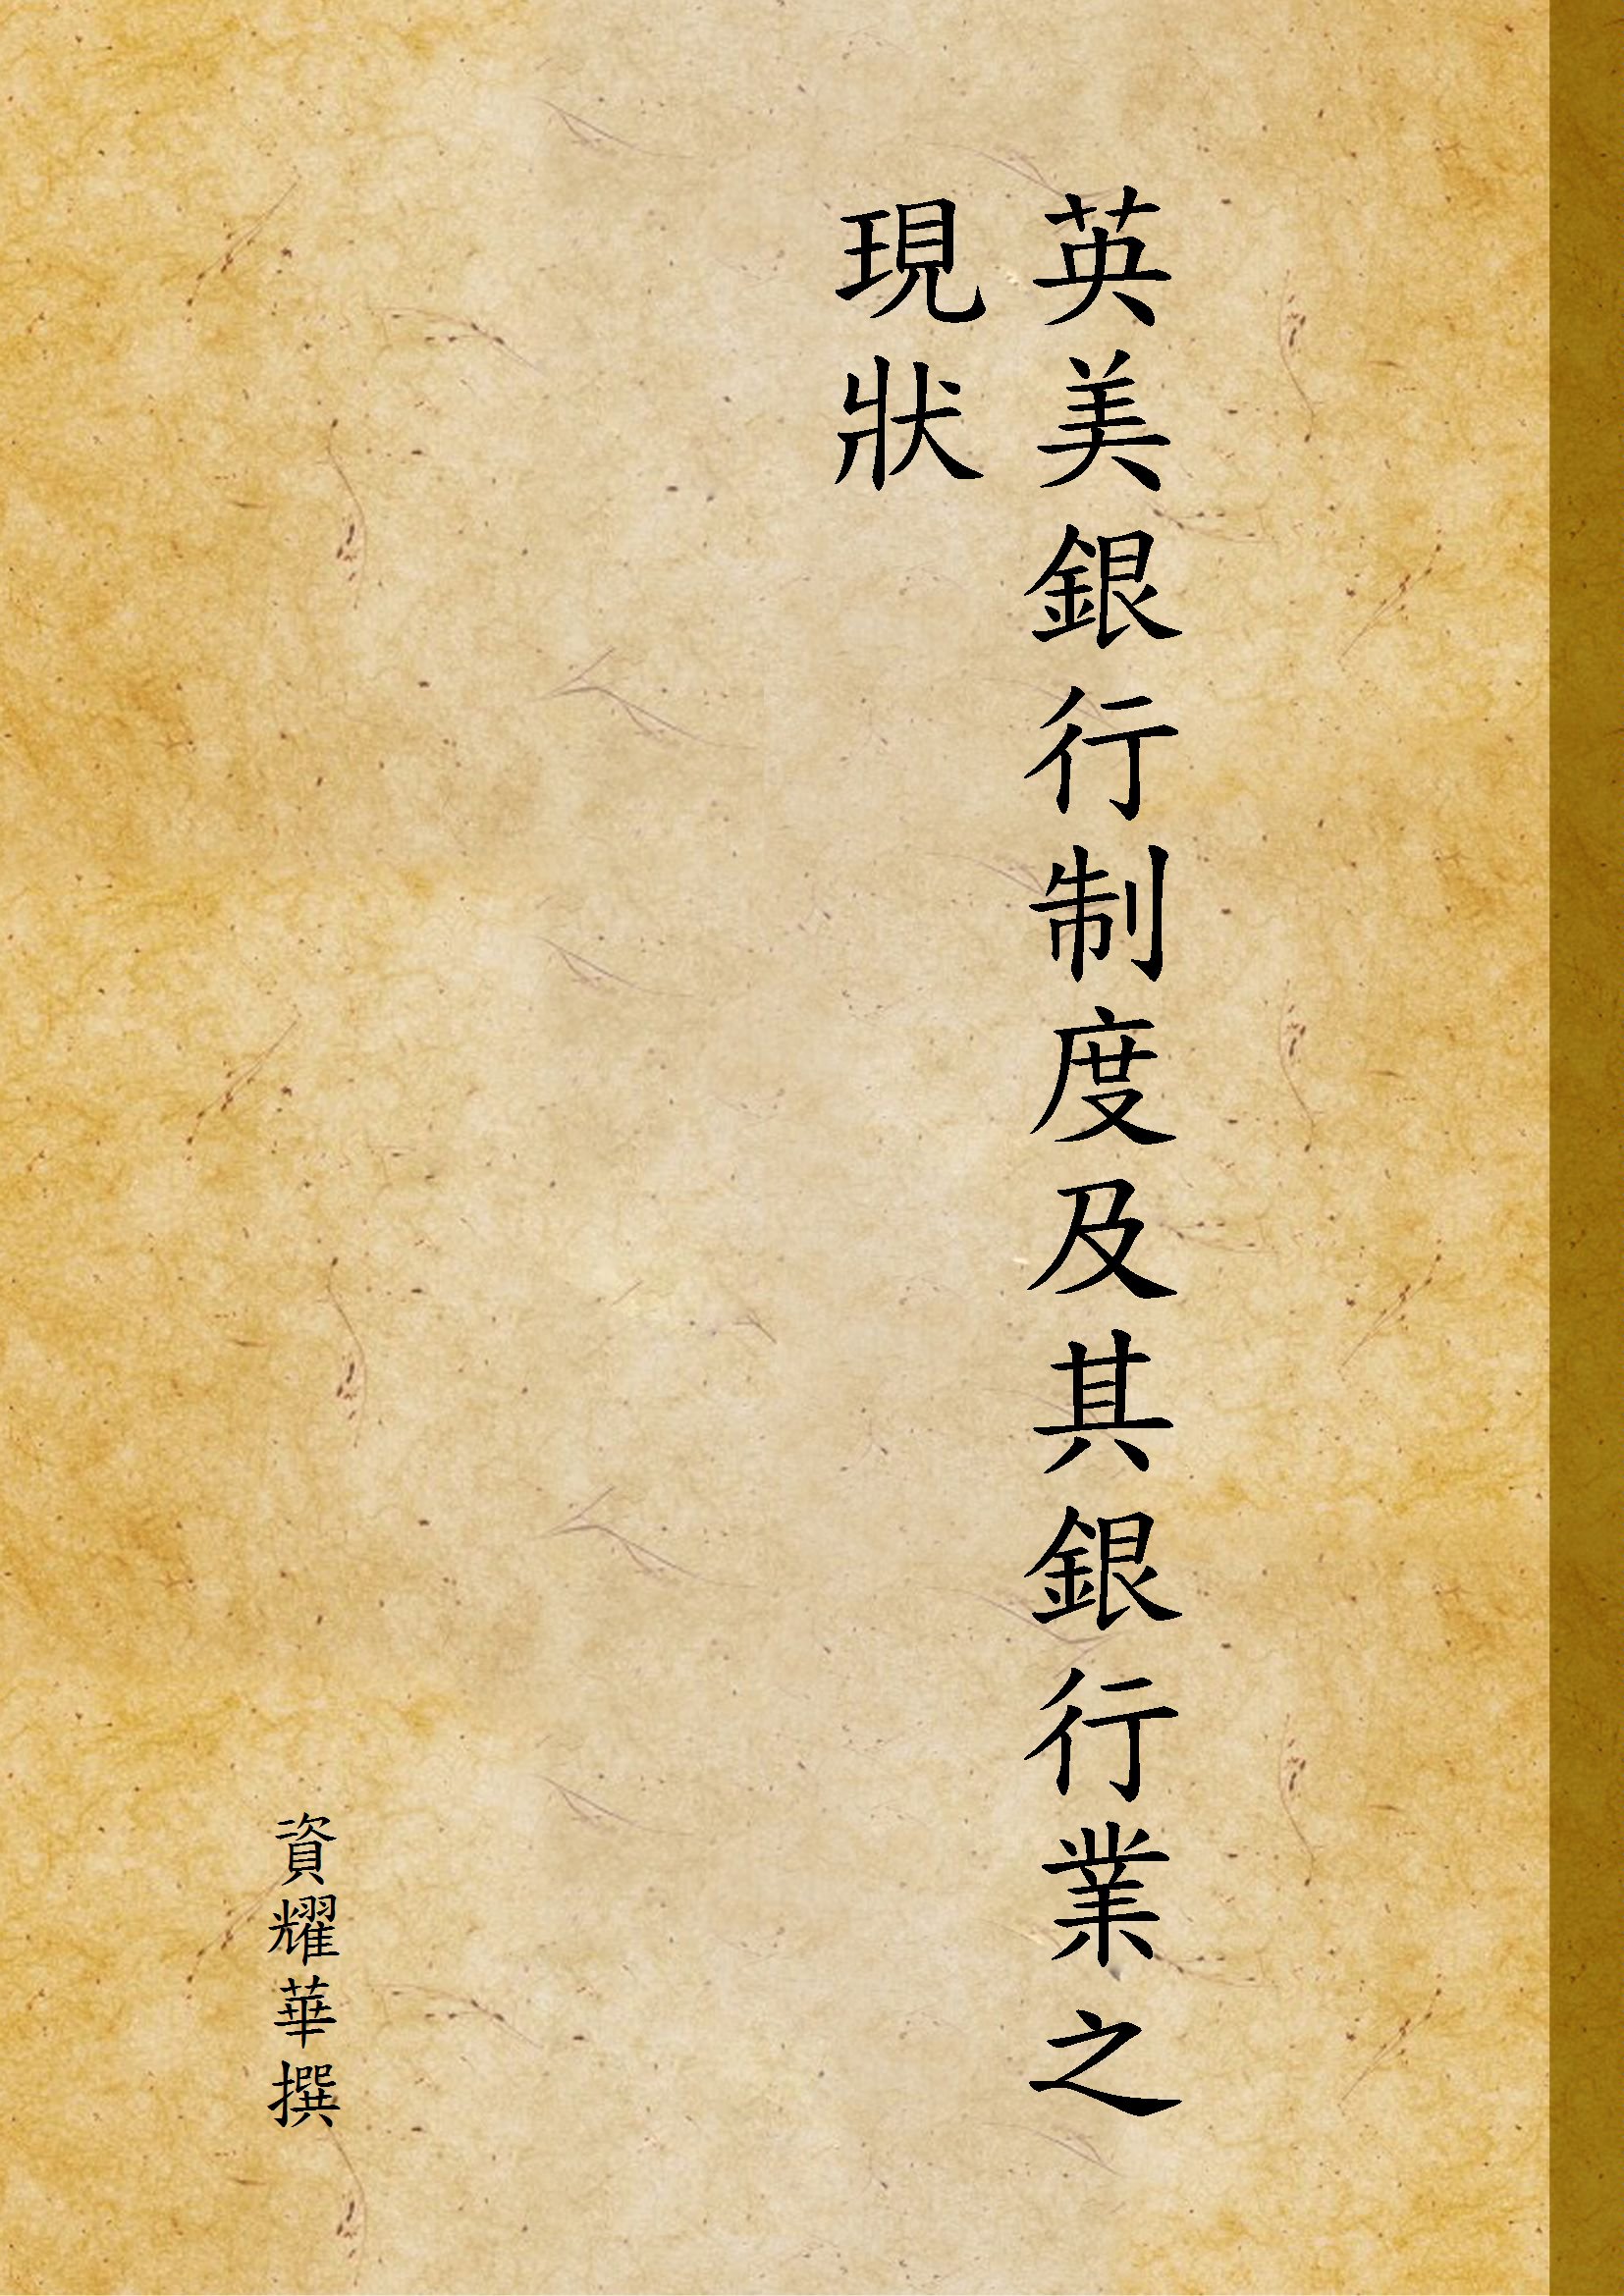 英美銀行制度及其銀行業之
現狀
資耀華撰